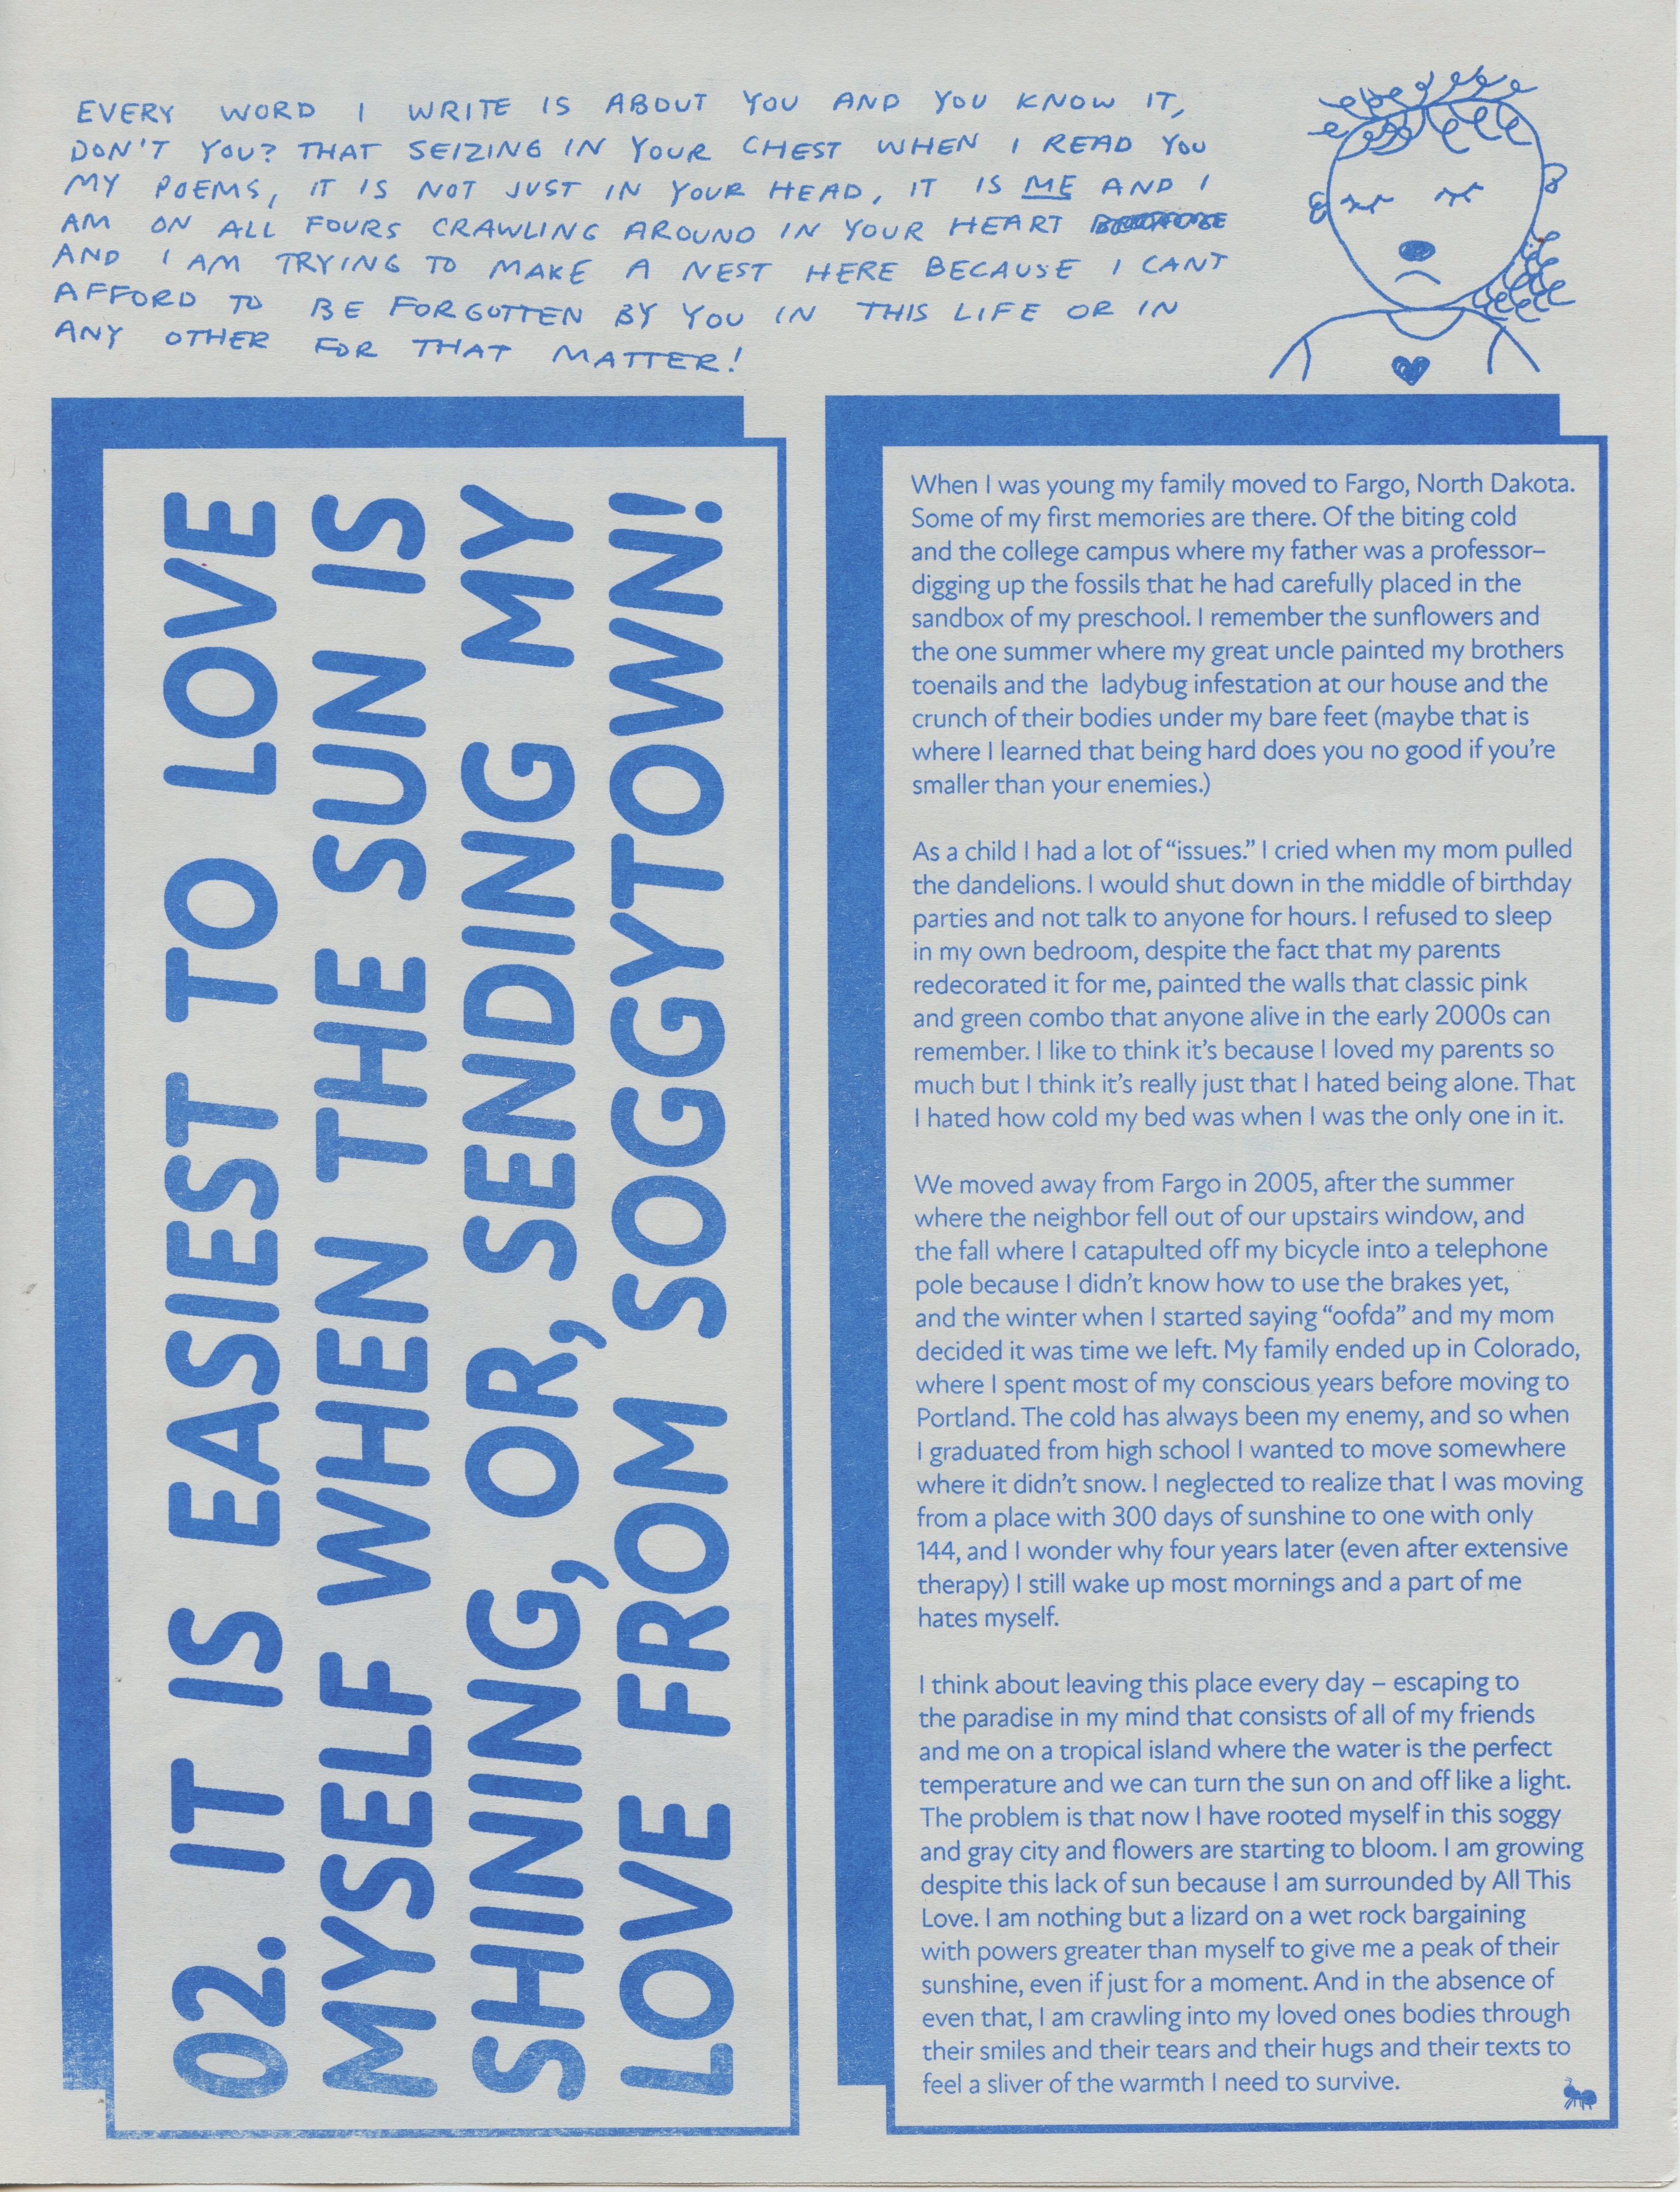 EVERY WORD I WRITE IS ABOUT YOU AND YOU KNOW IT,
DON'T YOU? THAT SEIZING IN YOUR CHEST WHEN I READ YOU
MY POEMS, IT IS NOT JUST IN YOUR HEAD, IT IS ME AND I
AM ON ALL FOURS CRAWLING AROUND IN YOUR HEART
AND I AM TRYING TO MAKE A NEST HERE BECAUSE I CANT
AFFORD TO BE FORGOTTEN BY YOU IN THIS LIFE OR IN
ANY OTHER FOR THAT MATTER!
02. IT IS EASIEST TO LOVE
MYSELF WHEN THE SUN IS
SHINING, OR, SENDING MY
LOVE FROM SOGGYTOWN!
When I was young my family moved to Fargo, North Dakota.
Some of my first memories are there. Of the biting cold
and the college campus where my father was a professor–
digging up the fossils that he had carefully placed in the
sandbox of my preschool. I remember the sunflowers and
the one summer where my great uncle painted my brothers
toenails and the ladybug infestation at our house and the
crunch of their bodies under my bare feet (maybe that is
where I learned that being hard does you no good if you're
smaller than your enemies.)
As a child I had a lot of “issues.” I cried when my mom pulled
the dandelions. I would shut down in the middle of birthday
parties and not talk to anyone for hours. I refused to sleep
in my own bedroom, despite the fact that my parents
redecorated it for me, painted the walls that classic pink
and green combo that anyone alive in the early 2000s can
remember. I like to think it's because I loved my parents so
much but I think it's really just that I hated being alone. That
I hated how cold my bed was when I was the only one in it.
We moved away from Fargo in 2005, after the summer
where the neighbor fell out of our upstairs window, and
the fall where I catapulted off my bicycle into a telephone
pole because I didn't know how to use the brakes yet,
and the winter when I started saying “oofda” and my mom
decided it was time we left. My family ended up in Colorado,
where I spent most of my conscious years before moving to
Portland. The cold has always been my enemy, and so when
I graduated from high school I wanted to move somewhere
where it didn't snow. I neglected to realize that I was moving
from a place with 300 days of sunshine to one with only
144, and I wonder why four years later (even after extensive
therapy) I still wake up most mornings and a part of me
hates myself.
I think about leaving this place every day – escaping to
the paradise in my mind that consists of all of my friends
and me on a tropical island where the water is the perfect
temperature and we can turn the sun on and off like a light.
The problem is that now I have rooted myself in this soggy
and gray city and flowers are starting to bloom. I am growing
despite this lack of sun because I am surrounded by All This
Love. I am nothing but a lizard on a wet rock bargaining
with powers greater than myself to give me a peak of their
sunshine, even if just for a moment. And in the absence of
even that, I am crawling into my loved ones bodies through
their smiles and their tears and their hugs and their texts to
feel a sliver of the warmth I need to survive.